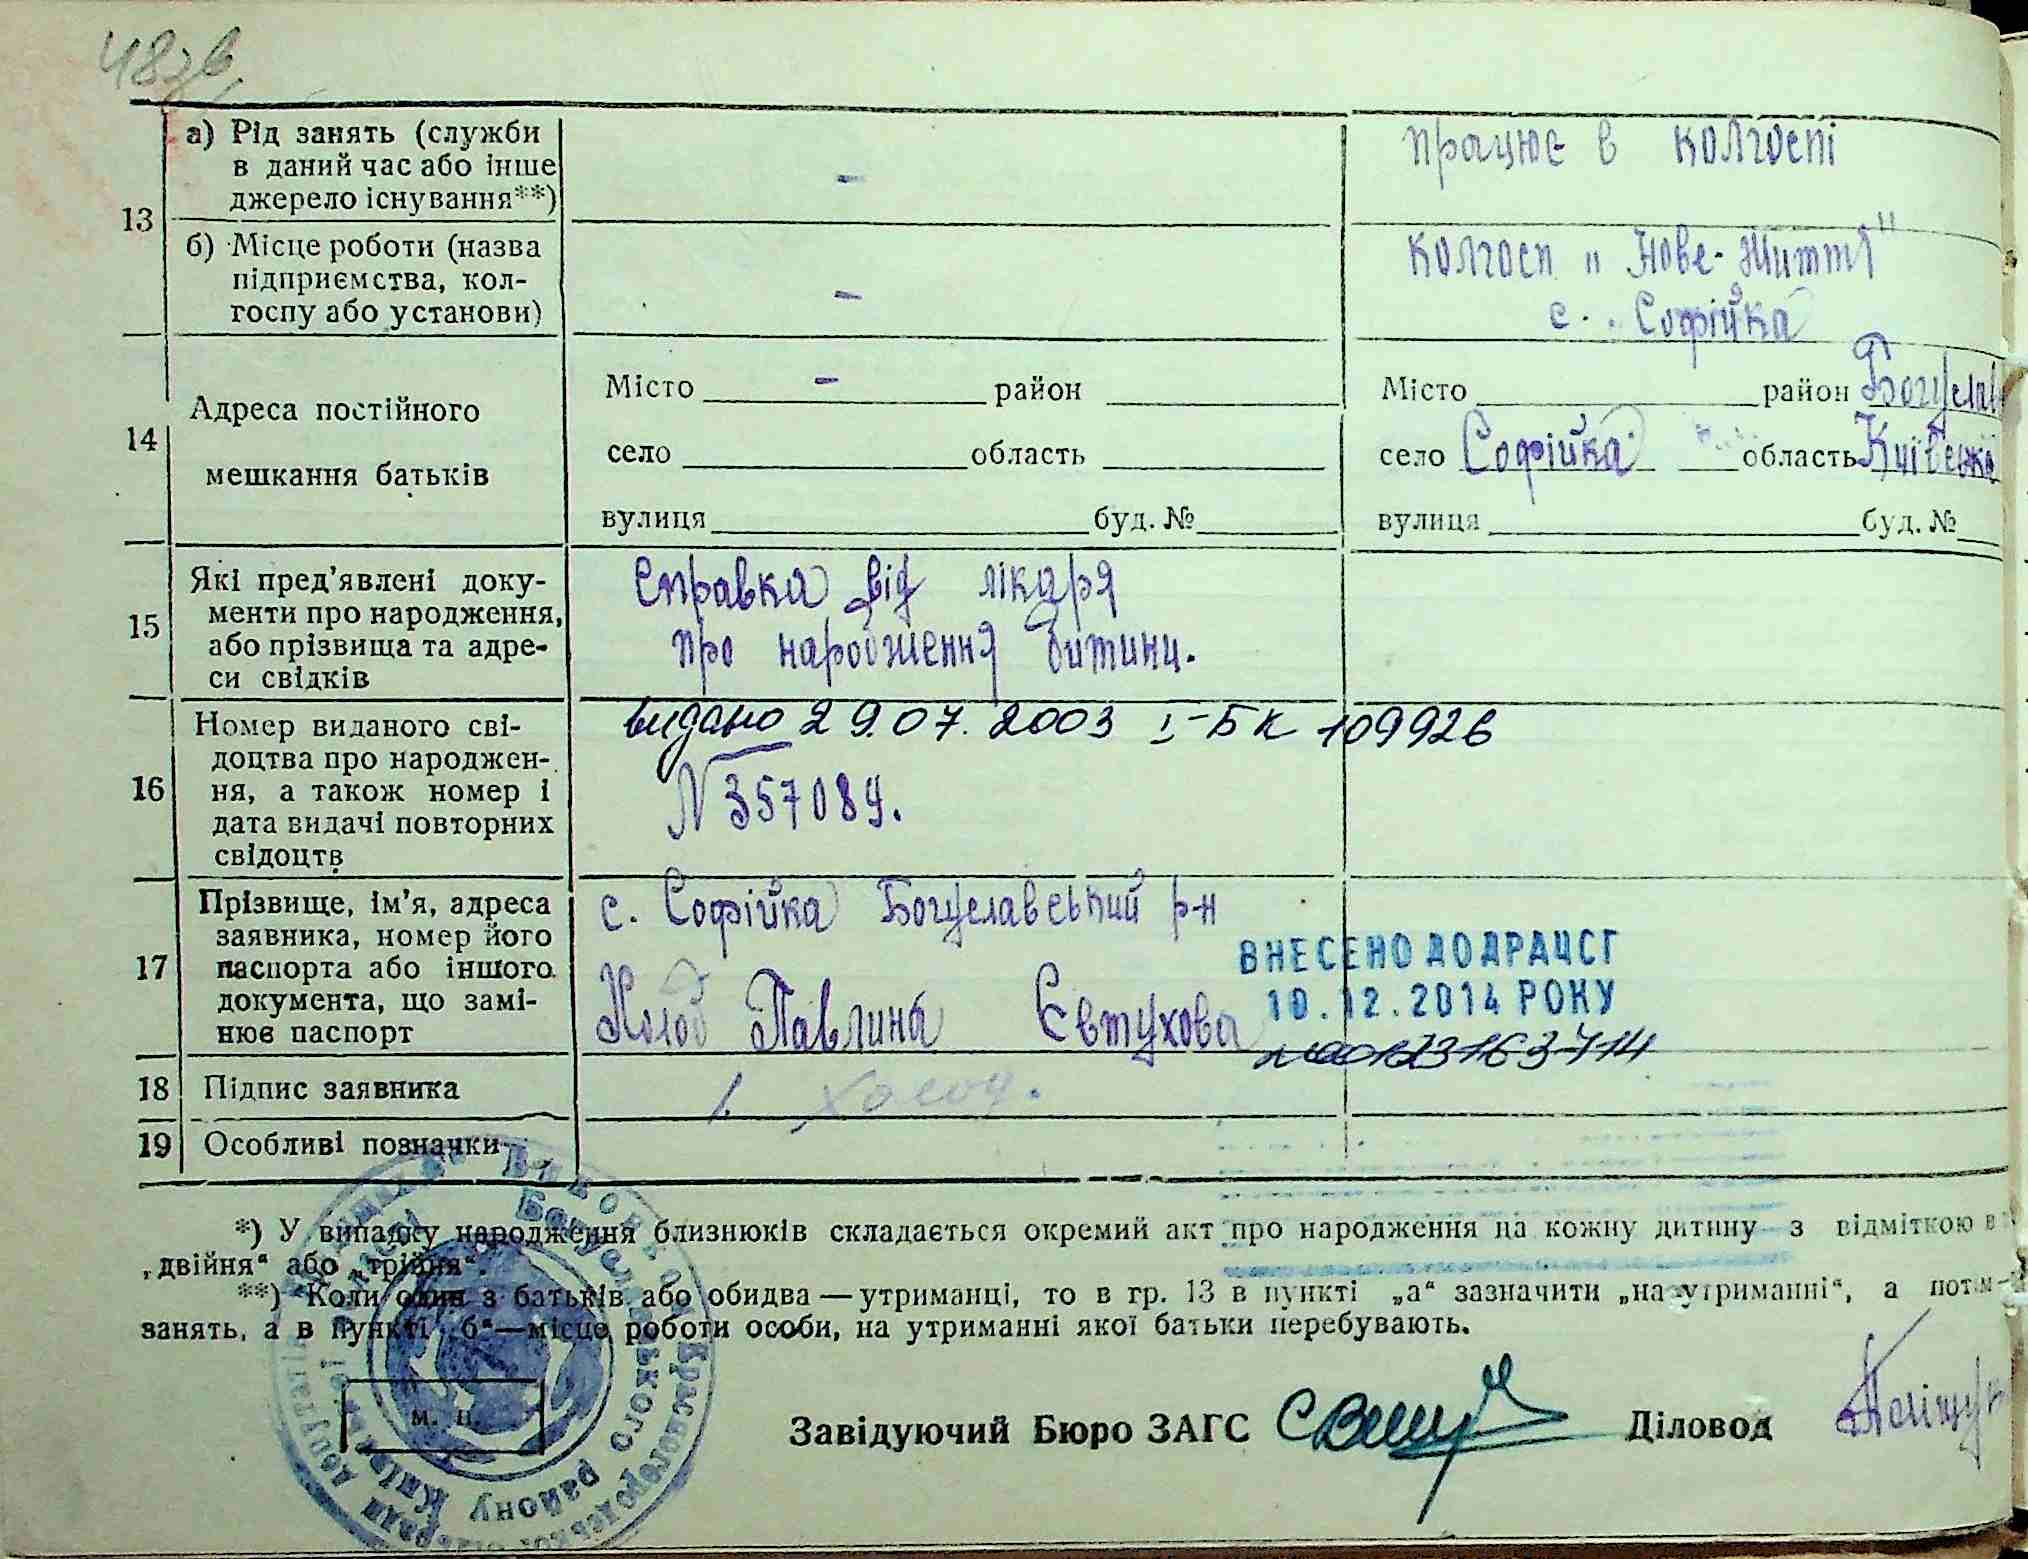 48зв
13
а) Рід занять (служби
в даний час або інше
джерело існування**)
-
працює в колгоспі
б) Місце роботи (назва
підприємства, кол-
госпу або установи)
-
колгосп „Нове-Життя"
с. Софійка
14
Адреса постійного
мешкання батьків
Місто - район
село область
вулиця буд. №
Місто район Богуслав
село Софійка область Київська
вулиця буд. №
15
Які пред'явлені доку-
менти про народження,
або прізвища та адре-
си свідків
справка від лікаря
про народження дитини.
16
Номер виданого сві-
доцтва про народжен-
ня, а також номер і
дата видачі повторних
свідоцтв
видано 29.07.2003 I-БК 109926
N 357089.
17
Прізвище, ім'я, адреса
заявника, номер його
паспорта або іншого
документа, що замі-
нює паспорт
с. Софійка Богуславський р-н
Холод Павлина Євтухова
ВНЕСЕНО ДО ДРАЦСГ
10.12.2014 РОКУ
18 Підпис заявника
Холод.
19 Особливі позначки
*) У випадку народження близнюків складається окремий акт про народження на кожну дитину з відміткою в
„двійня“ або „трійня“.
**) Коли один з батьків або обидва — утриманці, то в гр. 13 в пункті „а“ зазначити „на утриманні“, а потім
занять, а в пункті „б“—місце роботи особи, на утриманні якої батьки перебувають.
м. п.
Богуславського району
Завідуючий Бюро ЗАГС Діловод Поліщук